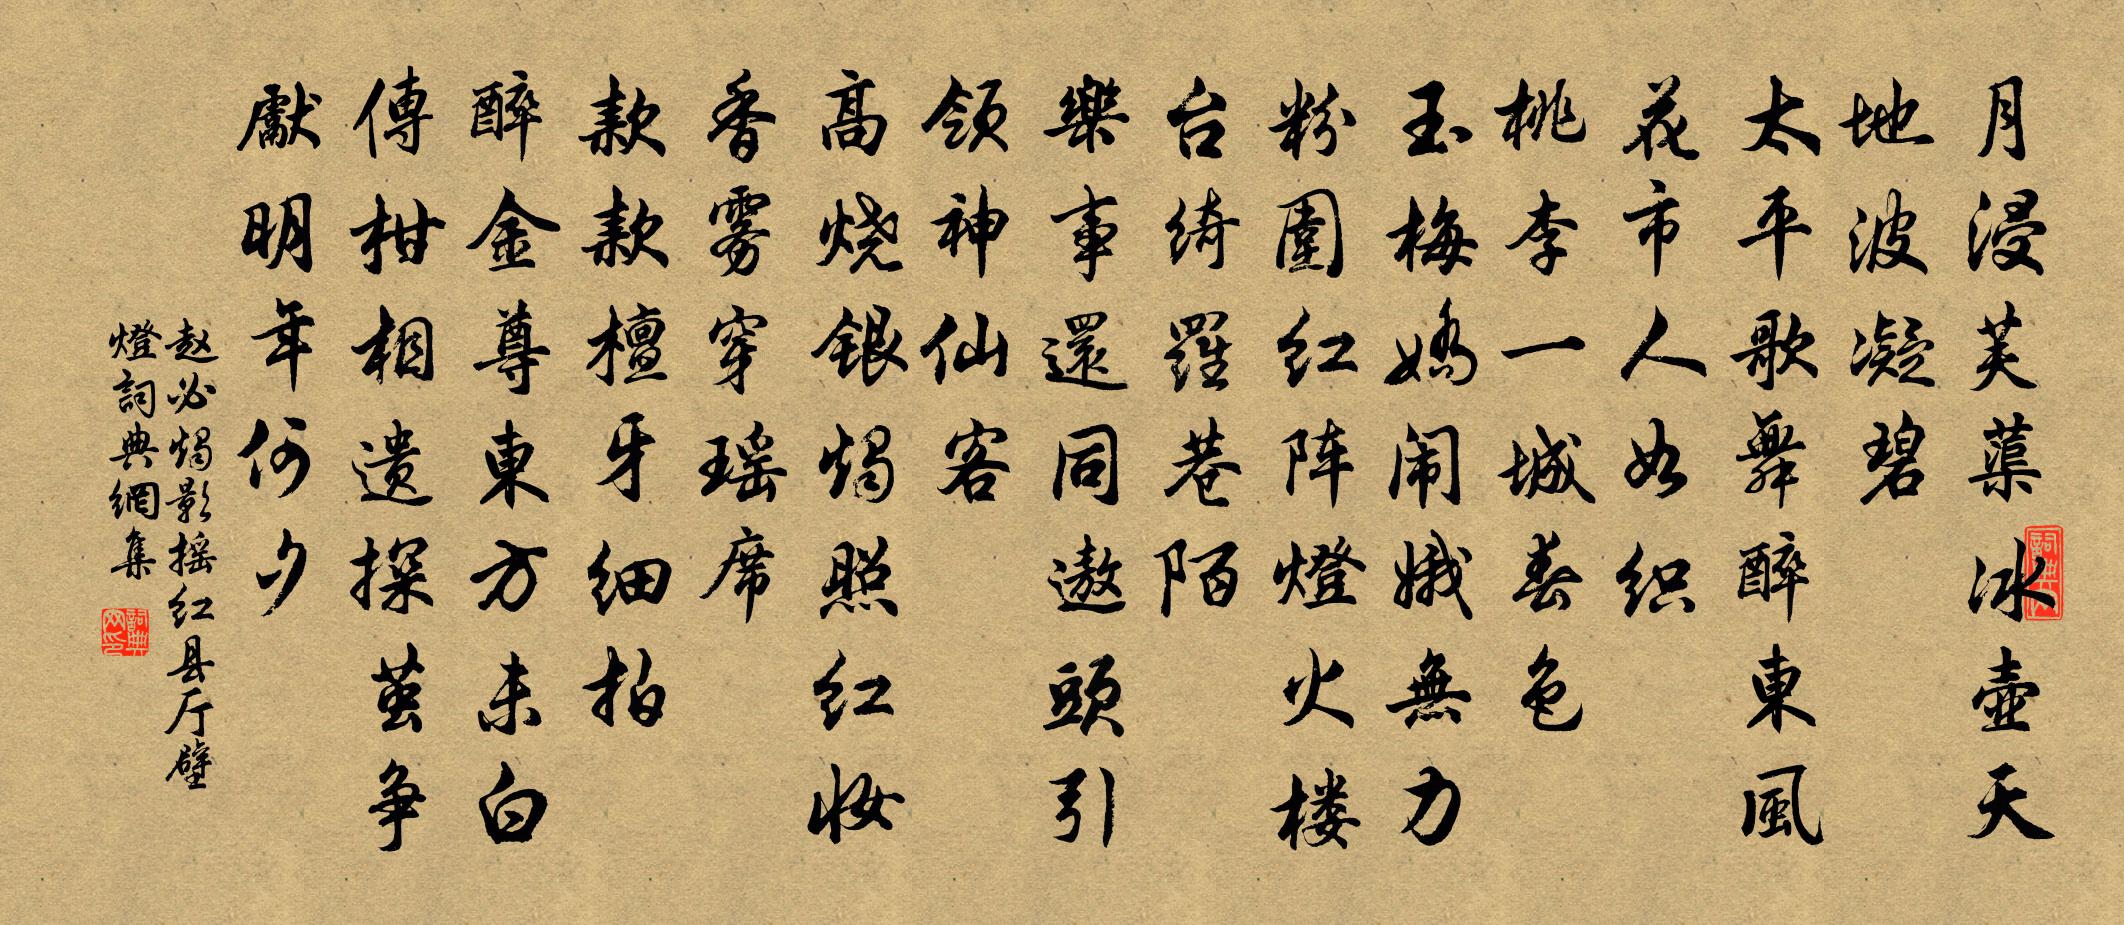 月浸芙蕖冰壺天
地波凝碧
太平歌舞醉東風
花市人如织
桃李一城春色
玉梅娇闹娥無力
粉圍红阵燈火楼
台绮羅巷陌
樂事還同遨頭引
领神仙客
高烧银烛照红妆
香雾穿瑶席
款款檀牙细拍
醉金尊東方未白
傳柑相遗探茧争
獻明年何夕
赵必𤩪影摇红县厅壁
燈詞典網集